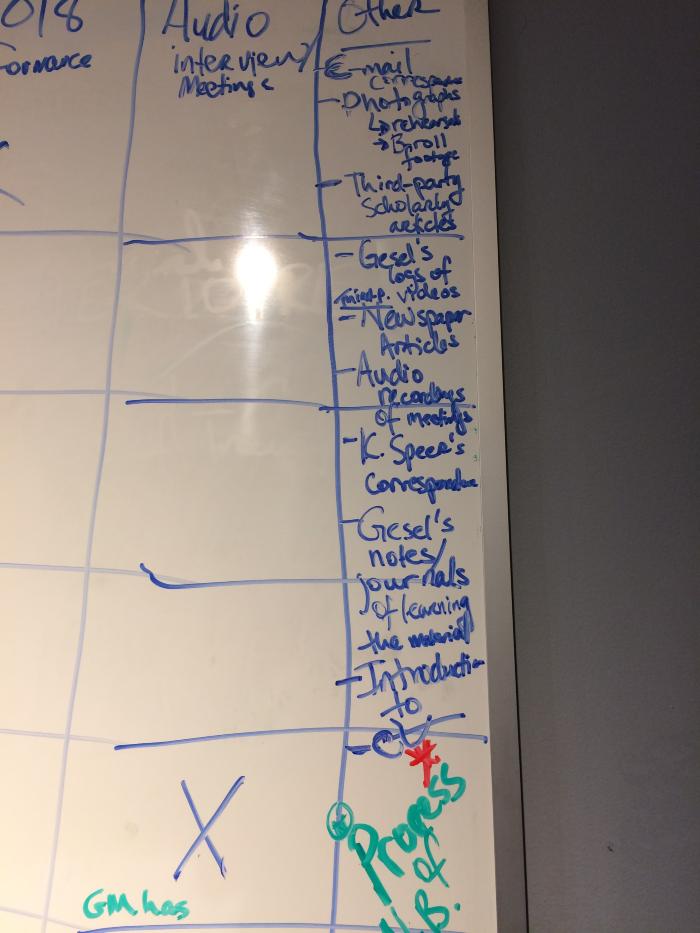 018
Formance
Audio
interviews/
Meetings
Other
E-mail
Photographs
↳ rehearsals
→ B-roll
footage
Third-party
Scholarly
articles
- Gesel's
logs of
third-p. videos
- Newspaper
Articles
- Audio
recordings
of meetings
- K. Speer's
Correspondence
- Gesel's
notes/
journals
of learning
the material
- Introduction
to
X
*
Process
of
N.B.
GM. has